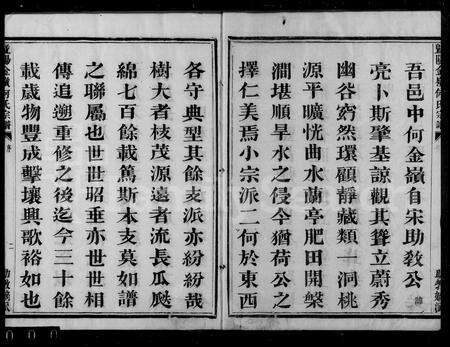 吾邑中何金嶺自宋助教公諱
亮卜斯肇基諒觀其聳立蔚秀
幽谷窈然環顧靜藏類一洞桃
源平曠恍曲水蘭亭肥田開槃
澗堪順旱水之侵今猶荷公之
擇仁美焉小宗派二何於東西
各守典型其餘支派亦紛紛哉
樹大者枝茂源遠者流長瓜瓞
綿七百餘載篤斯本支莫如譜
之聯屬也世世昭垂亦世世相
傳追遡重修之後迄今三十餘
載歲物豐成擊壤興歌裕如也
序
二